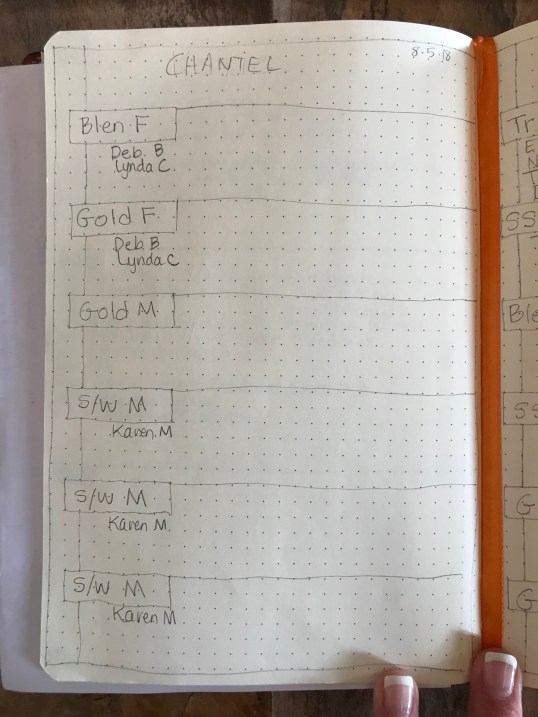 CHANTEL
8.5.18
Blen. F
Deb. B
Lynda C.
Gold F.
Deb. B
Lynda C
Gold M.
S/W. M
Karen. M
S/W. M
Karen M.
S/W M
Karen M
Tr
E
SS
Ble
SS
G
G